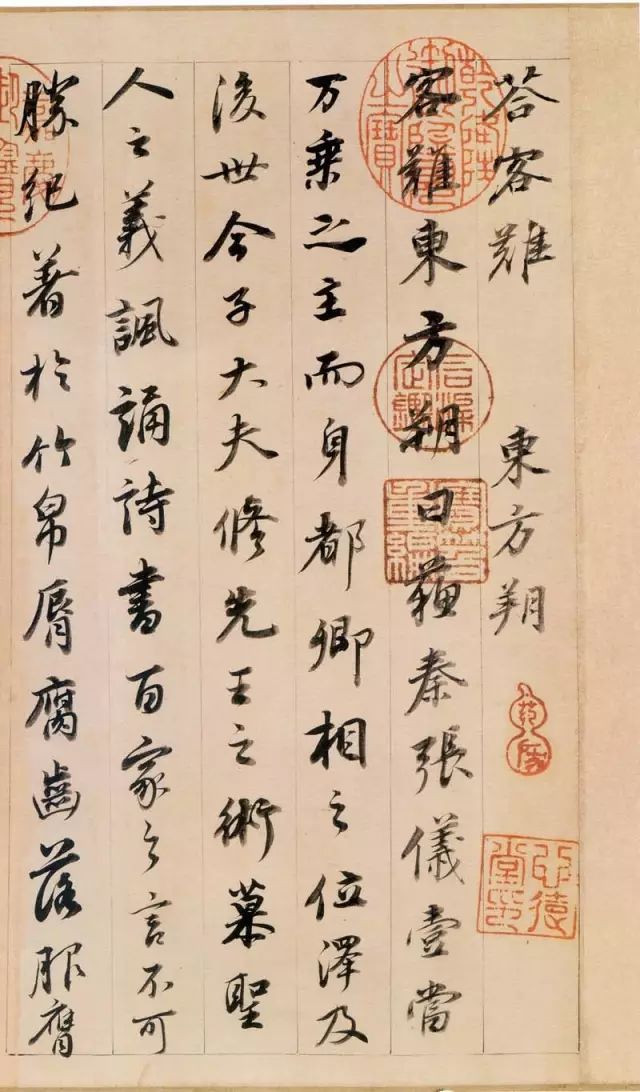 荅客難 東方朔
客難東方朔曰蘇秦張儀壹當
万乘之主而身都卿相之位澤及
後世今子大夫修先王之術慕聖
人之義諷誦詩書百家之言不可
勝紀著於竹帛脣腐齒落服膺
乾隆御覽之寶
石渠定鑑
寶笈重編